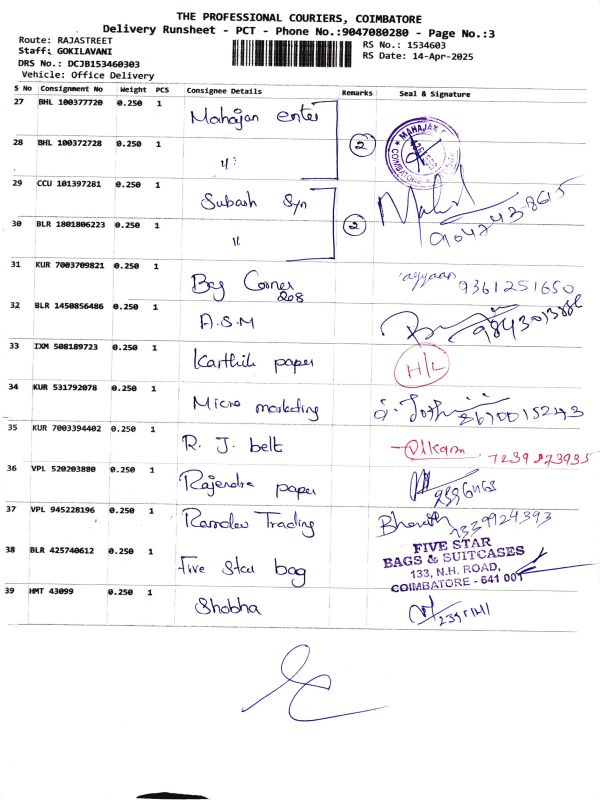 THE PROFESSIONAL COURIERS, COIMBATORE
Delivery Runsheet - PCT - Phone No.:9047080280 - Page No.:3
Route: RAJASTREET
Staff: GOKILAVANI
DRS No.: DCJB153460303
Vehicle: Office Delivery
RS No.: 1534603
RS Date: 14-Apr-2025
S No Consignment No Weight PCS Consignee Details Remarks Seal & Signature
27 BHL 100377720 0.250 1 Mahajan enter
28 BHL 100372728 0.250 1 " 2 MAHAJAN COIMBATORE
29 CCU 101397281 0.250 1 Subash Syn
30 BLR 1801806223 0.250 1 " 2 904743-8615
31 KUR 7003709821 0.250 1 Bag Corner 208 9361251650
32 BLR 1450856486 0.250 1 A.S.M
33 IXM 508189723 0.250 1 Karthik paper H/L
34 KUR 531792078 0.250 1 Micro marketing
35 KUR 7003394402 0.250 1 R. J. belt
36 VPL 520203880 0.250 1 Rajendra paper
37 VPL 945228196 0.250 1 Ramdev Trading Bharath 7339924393
38 BLR 425740612 0.250 1 Five Star bag
FIVE STAR
BAGS & SUITCASES
133, N.H. ROAD,
COIMBATORE - 641 001
39 HMT 43099 0.250 1 Shobha